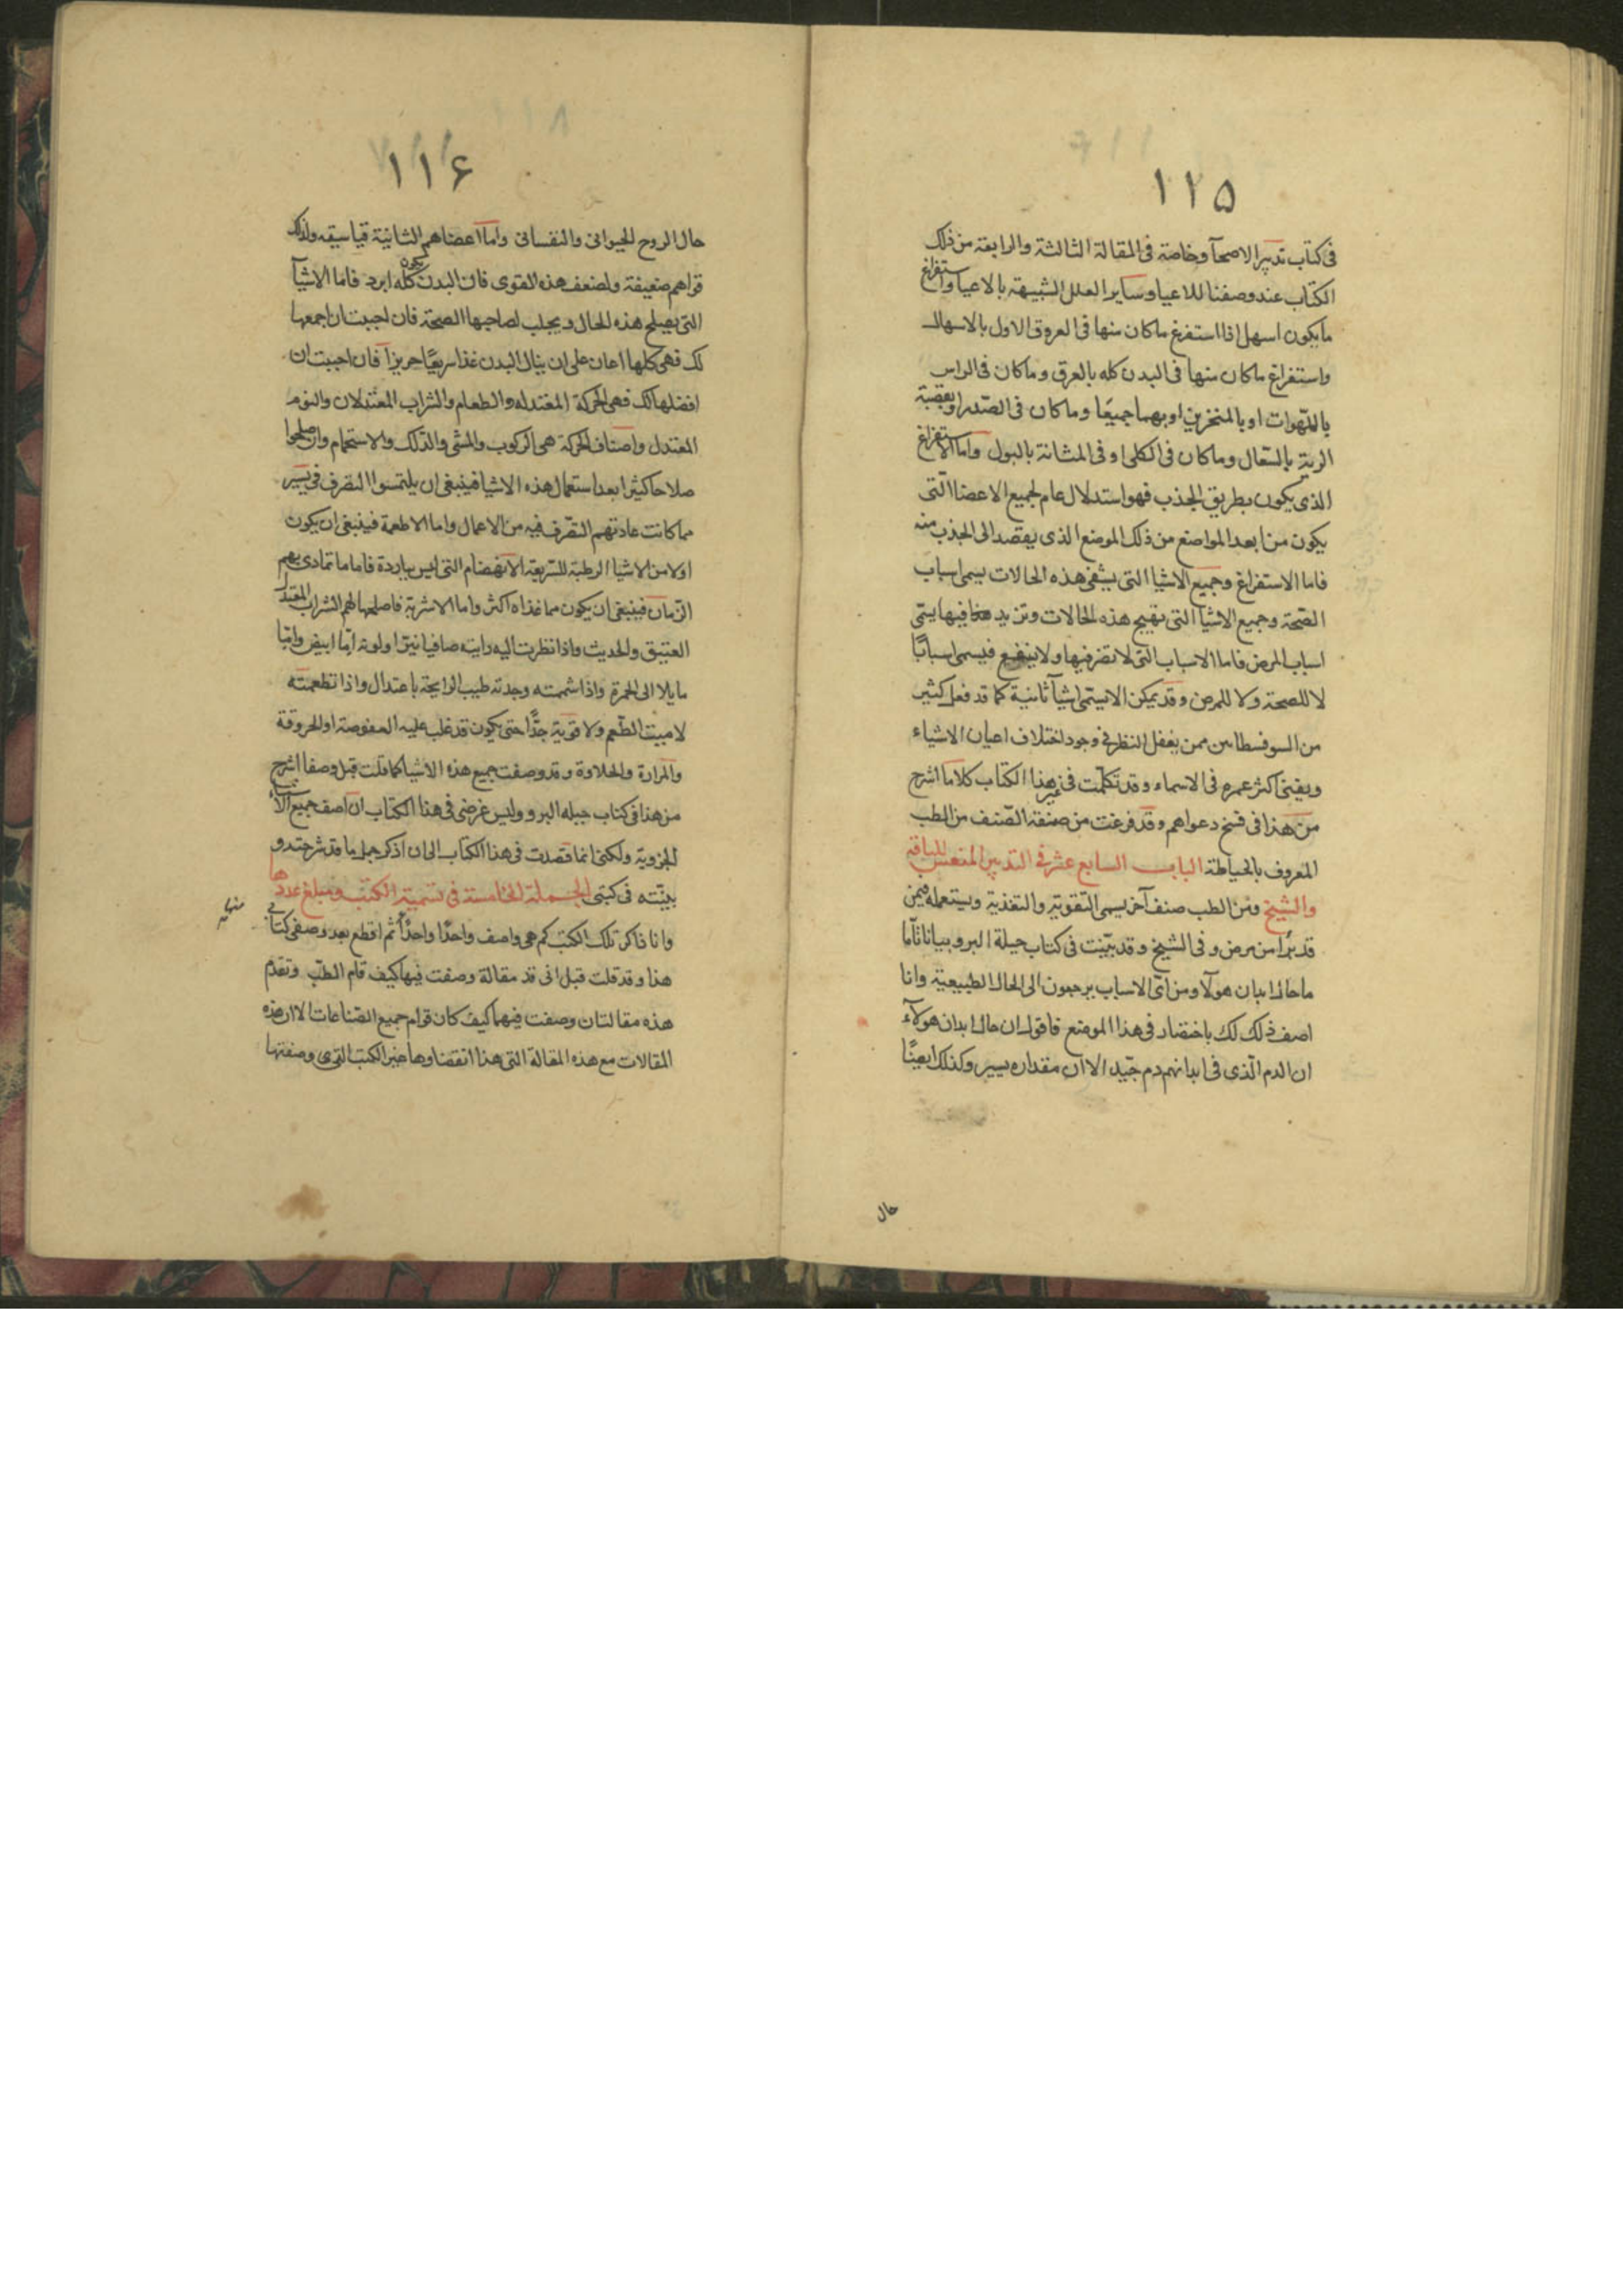 ١١٥
فى كتاب تدبير الاصحآ وخاصة فى المقالة الثالثة والرابعة من ذلك
الكتاب عند وصفنا للاعيا وساير العلل الشبيهة بالاعيا واستفراغ
ما يكون اسهل اذا استفرغ ما كان منها فى العروق الاول بالاسهال
واستفراغ ما كان منها فى البدن كله بالعرق وما كان فى الراس
باللهوات او بالمنخرين او بهما جميعًا وما كان فى الصدر او بقصبة
الرية بالسّعال وما كان فى الكلى او فى المثانة بالبول واما الاستفراغ
الذى يكون بطريق الجذب فهو استدلال عام لجميع الاعضا التى
يكون من ابعد المواضع من ذلك الموضع الذى يقصد الى الجذب منه
فاما الاستفراغ وجميع الاشيا التى يشفى هذه الحالات يسمى اسباب
الصّحة وجميع الاشيا التى تهيج هذه الحالات وتزيد فيها يسمى
اسباب المرض فاما الاسباب التى لا تضر فيها ولا ينفع فيسمى اسبابًا
لا للصحة ولا للمرض وقد يمكن الا يسمى اشيآ ثانية كما قد فعل كثير
من السوفسطاىىن ممن يغفل النظر فى وجود اختلاف اعيان الاشياء
ويفنى اكثر عمره فى الاسماء وقد تكلّمت فى غير هذا الكتاب كلاما اشرح
من هذا فى فسخ دعواهم وقد فرغت من صفة الصّنف من الطب
المعروف بالحياطة الباب السابع عشر فى التدبير المنعش للناقه
والشيخ ومن الطب صنف آخر يسمى التقوية والتغذية ويستعمله فيمن
قد برُا من مرض وفى الشيخ وقد بيّنت فى كتاب حيلة البرو بيانا تآما
ما حال ابدان هولآ ومن اىّ الاسباب يرجعون الى الحال الطبيعية وانا
اصف ذلك لك باختصار فى هذا الموضع فاقول ان حال ابدان هولآء
ان الدم الّذى فى ابدانهم دم جيّد الا ان مقداره يسير وكذلك ايضًا
حال
١١۶
حال الروح الحيوانى والنفسانى واما اعضاهم الثانية قياسيقه ولذلك
قواهم ضعيفة ولضعف هذه القوى فان البدن يكون كله ابرد فاما الاشيآ
التى يصلح هذه الحال ويجلب لصاحبها الصحة فان احببت ان اجمعها
لك فهى كلها اعان على ان ينال البدن غذا سريعًا حريزاً فان احببت ان
افضلها لك فهى الحركة المعتدله والطعام والشراب المعتدلان والنوم
المعتدل واصناف الحركة هى الركوب والمشى والدّلك والاستحمام وان صلحوا
صلاحا كثيرا بعد استعمال هذه الاشيا فينبغى ان يلتمسوا التصرف فى يسير
مما كانت عادتهم التصّرف فيه من الاعمال واما الاطعمة فينبغى ان يكون
اولا من الاشيا الرطبة السّريعة الانهضام التى ليس بباردة فاما ما تمادى بهم
الزمان فينبغى ان يكون مما غذاه اكثر واما الاشربة فاصلحها لهم الشراب المعتدل
العتيق والحديث واذا نظرت اليه رايته صافيا نيّرا ولونه امّا ابيض وامّا
مايلا الى الحمرة واذا شممته وجدته طيب الرايحة باعتدال واذا تطعمته
لا ميت الطّعم ولا قوّية جدًّا حتى يكون قد غلب عليه العفوصة او الحروقة
والمرارة والحلاوة وقد وصفت جميع هذه الاشيا كما قلت قبل وصفا اشرح
من هذا فى كتاب حيله البرو وليس غرضى فى هذا الكتاب ان اصف جميع الاشيا
الجزوية ولكنى انما قصدت فى هذا الكتاب الى ان اذكر جمل ما قد شرحته و
بيّنته فى كتبى الجملة الخامسة فى تسمية الكتب ومبلغ عددها
وانا ذاكر تلك الكتب كم هى واصف واحدًا واحدًا ثم اقطع بعد وصفى كتابى
منها
هذا وقد قلت قبل انى قد مقالة وصفت فيها كيف قام الطبّ وتقدم
هذه مقالتان وصفت فيهما كيف كان قوام جميع الصّناعات الا ان هذه
المقالات مع هذه المقالة التى هذا انقضاوها خبر الكتب التى وصفتها